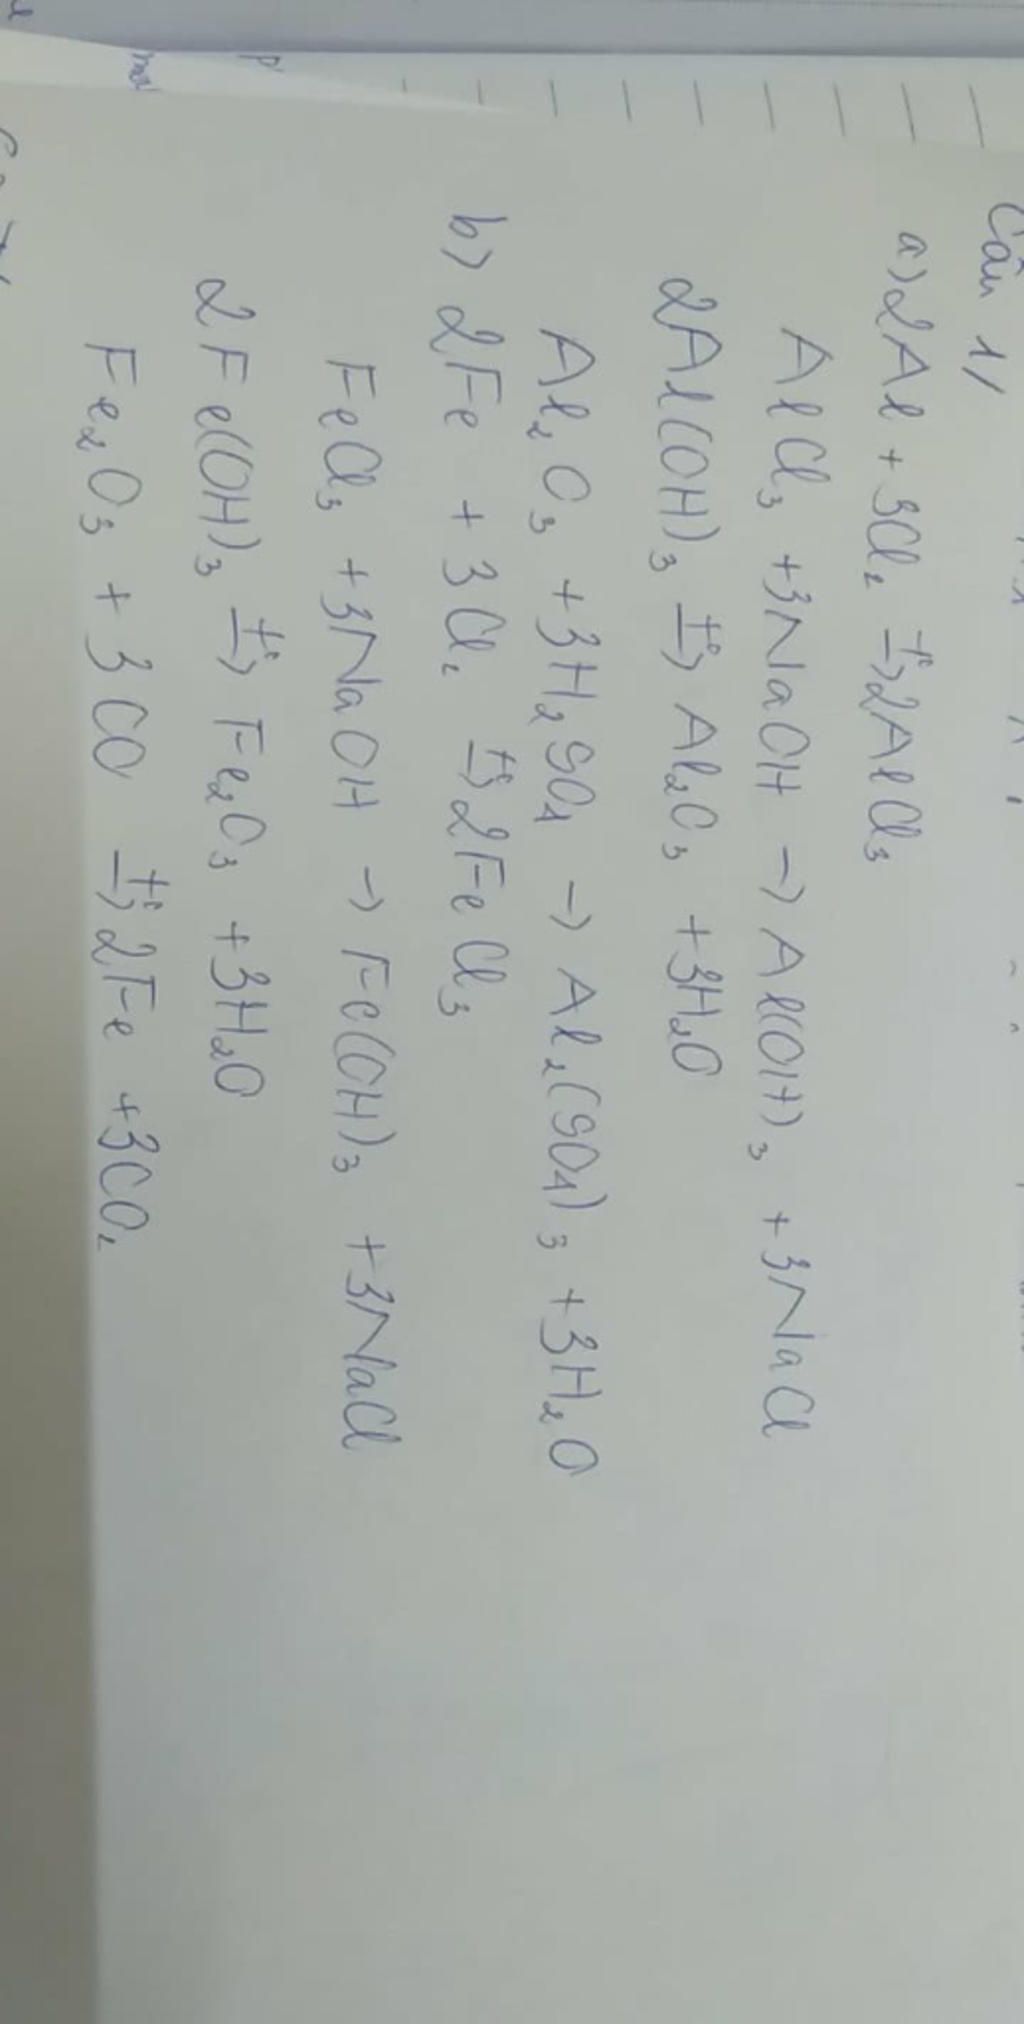 Câu 1/
a) 2Al + 3Cl₂ →t° 2AlCl₃
AlCl₃ + 3NaOH → Al(OH)₃ + 3NaCl
2Al(OH)₃ →t° Al₂O₃ + 3H₂O
Al₂O₃ + 3H₂SO₄ → Al₂(SO₄)₃ + 3H₂O
b) 2Fe + 3Cl₂ →t° 2FeCl₃
FeCl₃ + 3NaOH → Fe(OH)₃ + 3NaCl
2Fe(OH)₃ →t° Fe₂O₃ + 3H₂O
Fe₂O₃ + 3CO →t° 2Fe + 3CO₂